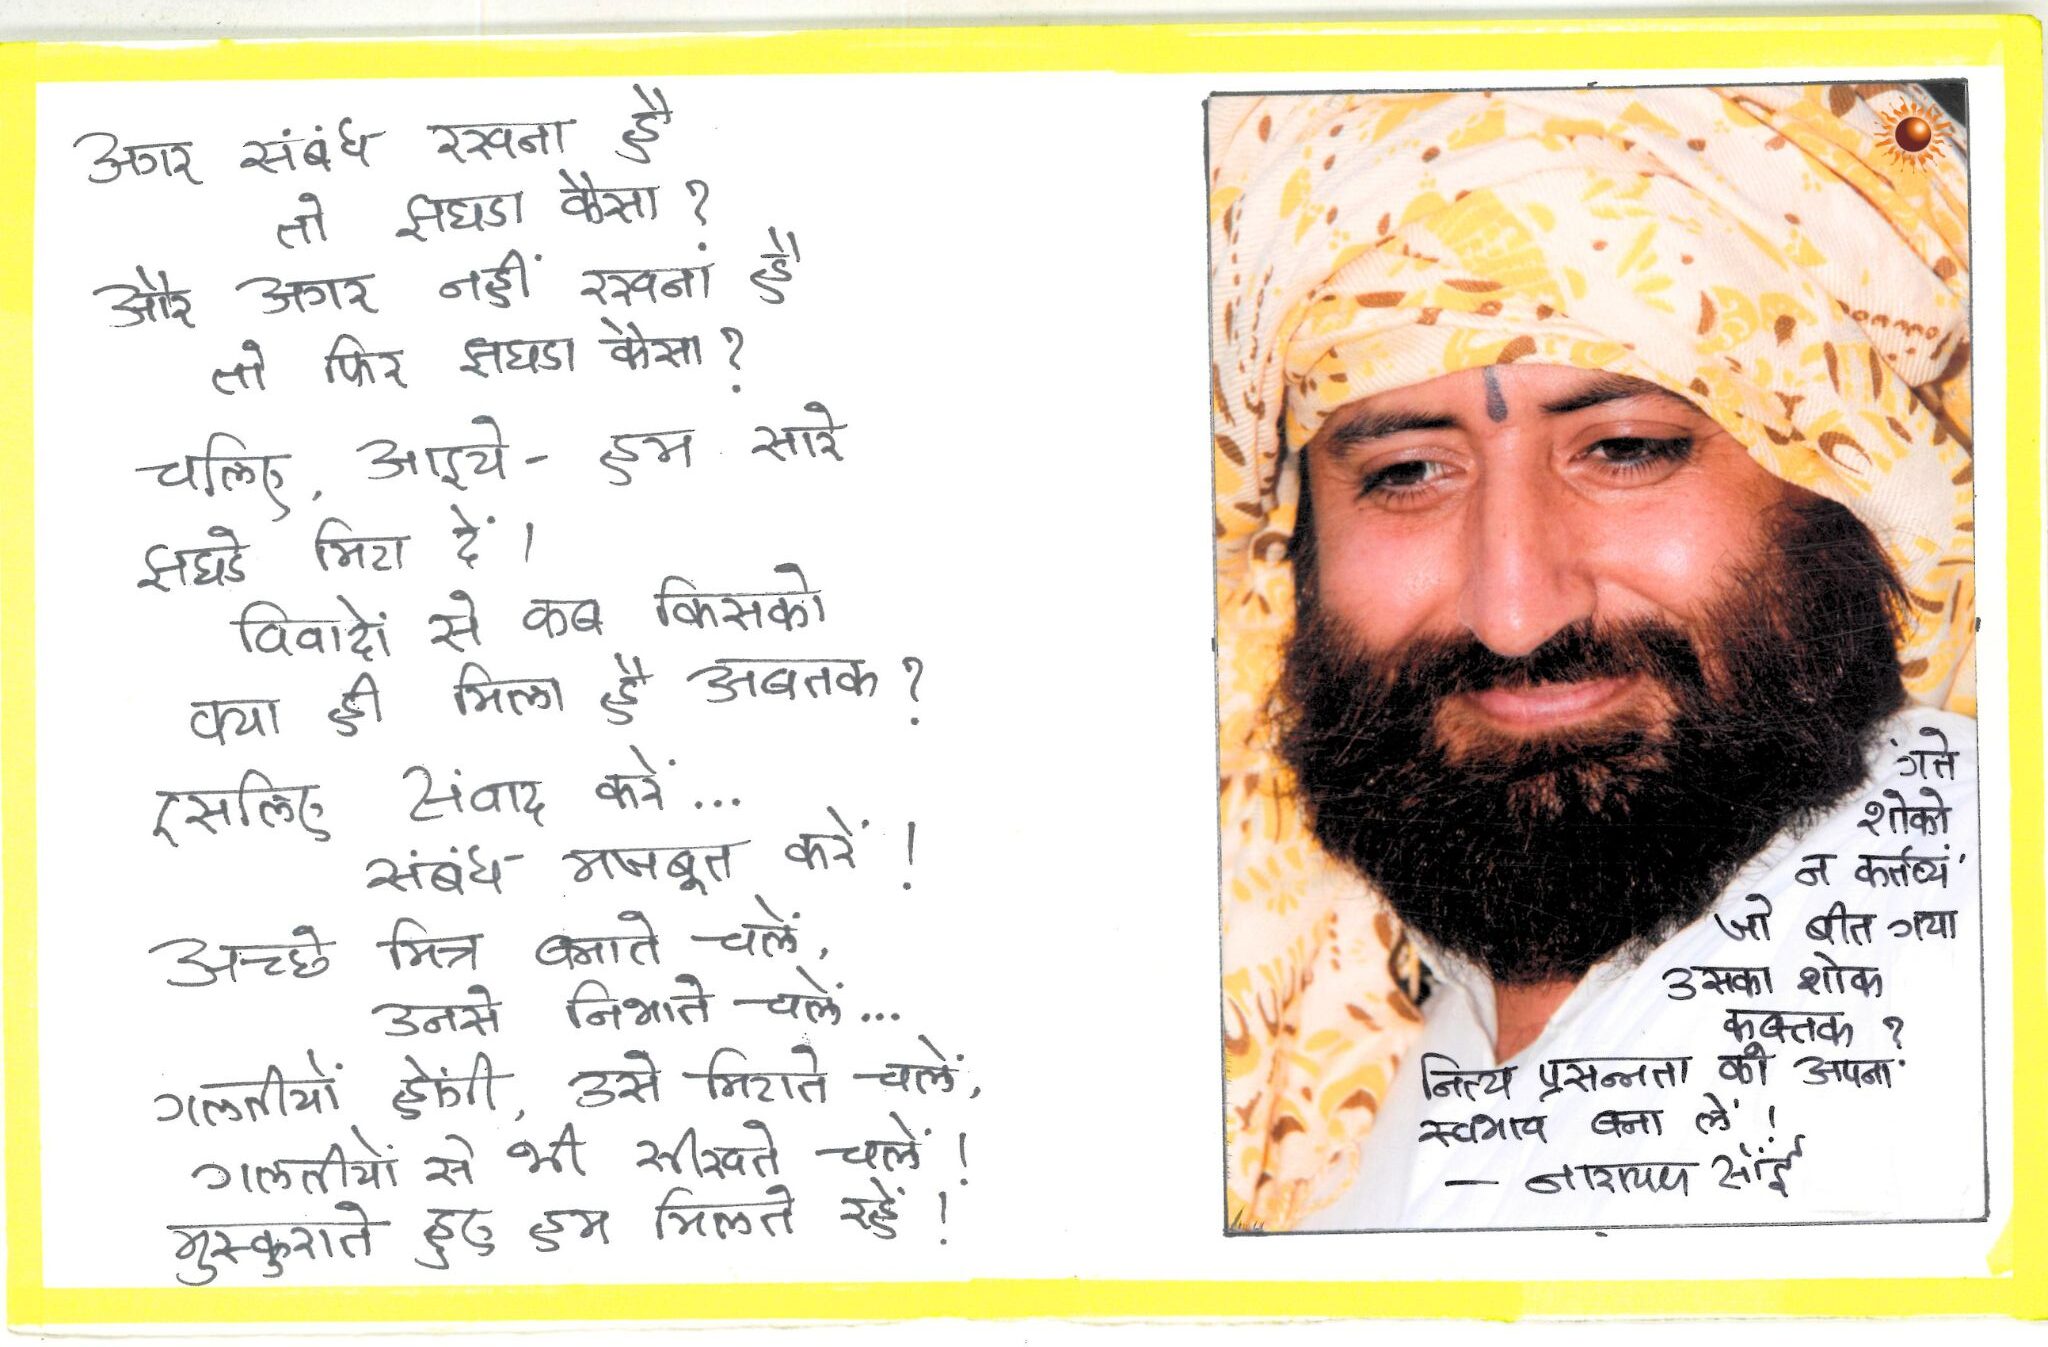 अगर संबंध रखना है
तो झघडा कैसा?
और अगर नहीं रखनां है
तो फिर झघडा कैसा?
चलिए, आइये - हम सारे
झघडे मिटा दें।
विवादों से कब किसको
क्या ही मिला है अबतक?
इसलिए संवाद करें...
संबंध मजबूत करें!
अच्छे मित्र बनाते चलें,
उनसे निभाते चलें...
गलतीयों होंगी, उसे मिटाते चलें,
गलतीयों से भी सीखते चलें!
मुस्कुराते हुए हम मिलते रहें!
गंते
शोको
न कर्तव्यं
जो बीत गया
उसका शोक
कबतक?
नित्य प्रसन्नता को अपना
स्वभाव बना लें!
— नारायण साँई